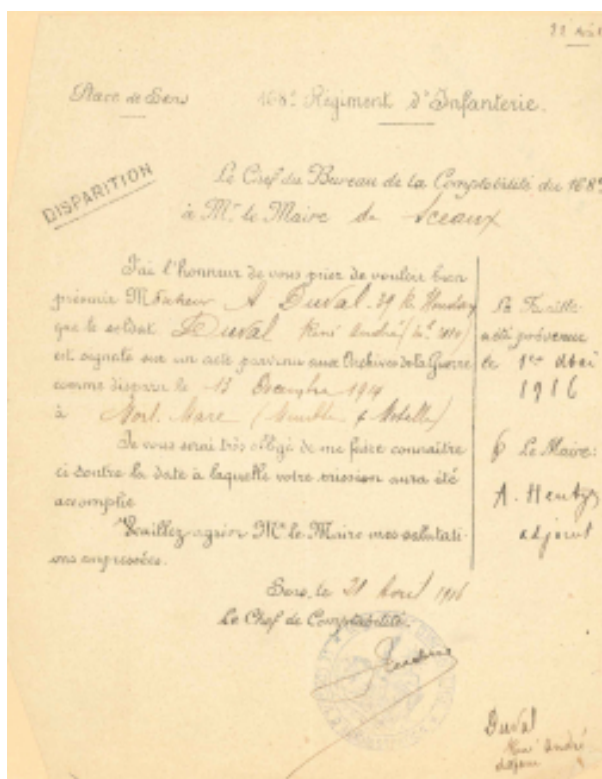 Place de Sens
168e Régiment d'Infanterie.
DISPARITION
Le Chef du Bureau de la Comptabilité du 168e
à Mr le Maire de Sceaux
J'ai l'honneur de vous prier de vouloir bien
prévenir Monsieur A Duval. 39 R. Houdan
que le soldat Duval René André
est signalé sur un acte parvenu aux Archives de la Guerre
comme disparu le 13 Décembre 1914
à Mort. Mare (Meurthe & Moselle)
Je vous serai très obligé de me faire connaître
ci contre la date à laquelle votre mission aura été
accomplie
Veuillez agréer Mr le Maire mes salutati-
ons empressées.
Sens, le 21 Avril 1916
Le Chef de Comptabilité.
La Famille
a été prévenue
le 1er Mai
1916
Le Maire:
A.
adjoint
Duval
René André